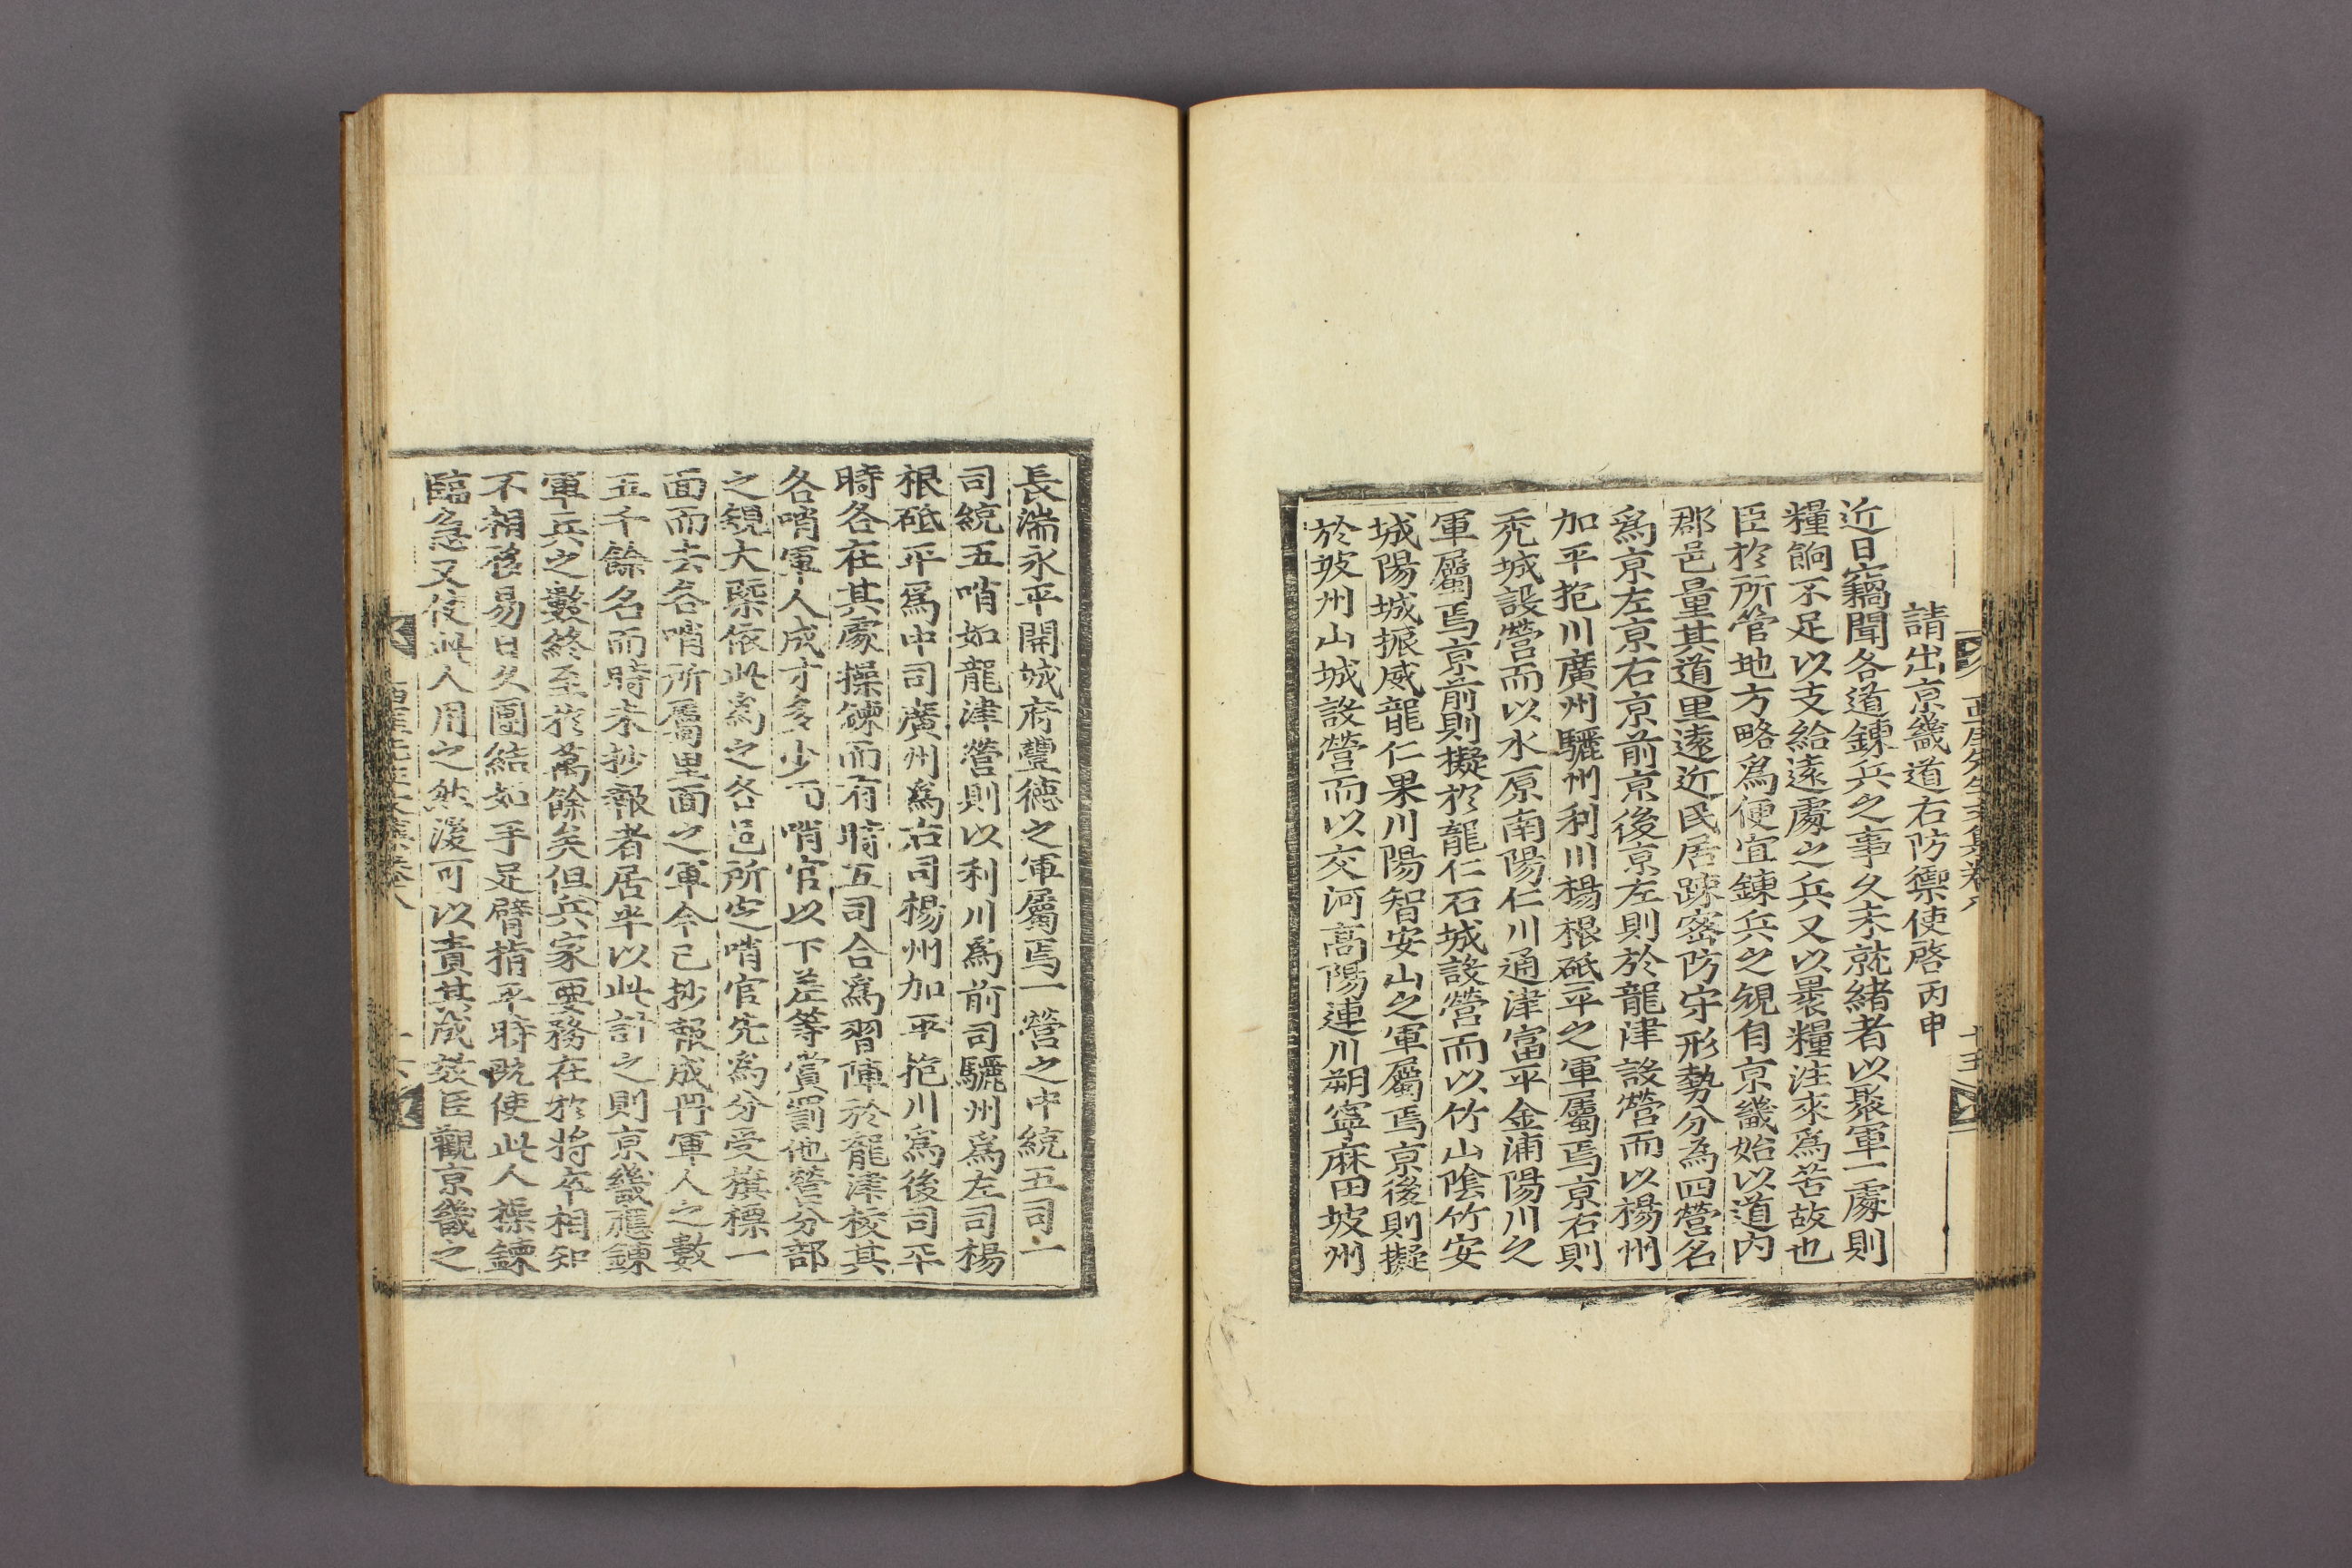 請出京畿道右防禦使啓丙申
近日竊聞各道鍊兵之事久未就緖者以聚軍一處則
糧餉不足以支給遠處之兵又以褁糧注來爲苦故也
臣於所管地方略爲便宜鍊兵之規自京畿始以道內
郡邑量其道里遠近民居踈密防守形勢分爲四營名
爲京左京右京前京後京左則於龍津設營而以楊州
加平抱川廣州驪州利川楊根砥平之軍屬焉京右則
禿城設營而以水原南陽仁川通津富平金浦陽川之
軍屬焉京前則擬於龍仁石城設營而以竹山陰竹安
城陽城振威龍仁果川陽智安山之軍屬焉京後則擬
於坡州山城設營而以交河高陽連川朔寧麻田坡州
長湍永平開城府豐德之軍屬焉一營之中統五司一
司統五哨如龍津營則以利川爲前司驪州爲左司楊
根砥平爲中司廣州爲右司楊州加平抱川爲後司平
時各在其處操鍊而有時五司合爲習陣於龍津挍其
各哨軍人成才多少而哨官以下差等賞罰他營分部
之規大槩依此爲之各邑所定哨官先爲分受旗標一
面而去各哨所屬里面之軍今已抄報成冊軍人之數
五千餘名而時未抄報者居半以此計之則京畿應鍊
軍兵之數終至於萬餘矣但兵家要務在於將卒相知
不相移易日久團結如手足臂指平時旣使此人操鍊
臨急又使此人用之然後可以責其成效臣觀京畿之